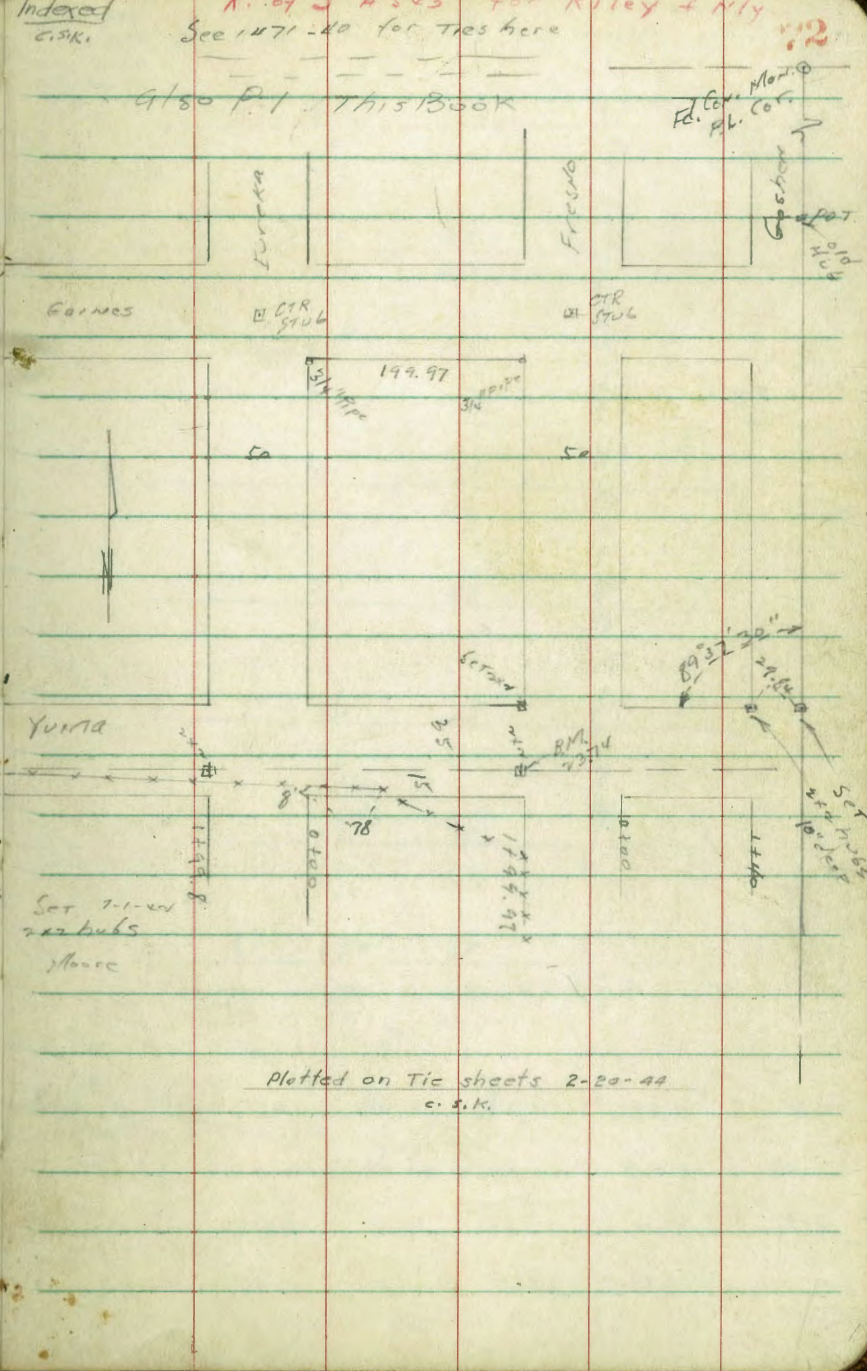 Indexed
C.S.K.
for Riley & Nly
See 1471-40 for Ties here
72
Also P.1 This Book
Fd. Con. Mon.
P.L. Cor.
Eureka
Fresno
Goshen
P.O.T.
Old Hub
Gaines
CTR
STUB
CTR
STUB
199.97
3/4" Pipe
3/4" Pipe
50
50
N
89° 37' 30"
29.84
Set 2x2
Yuma
2x2
59
2x2
B.M.
23.74
15
8'
78
1+99.8
0+00
1+99.97
0+00
1+40
Set
2x2 hubs
10" deep
Set 7-1-42
2x2 hubs
Moore
Plotted on Tie sheets 2-20-44
C.S.K.